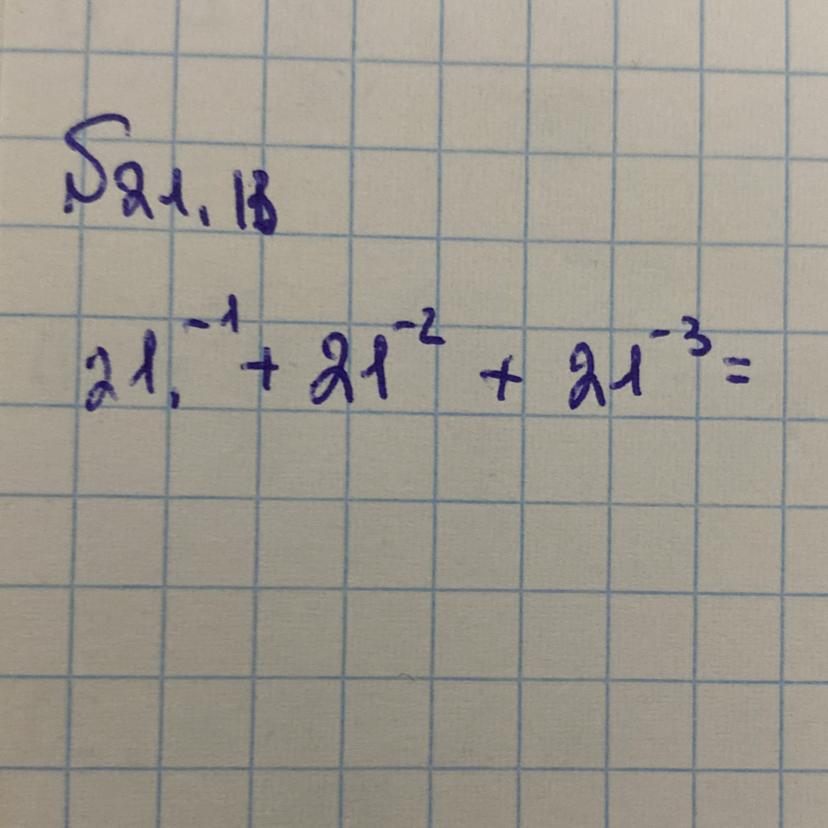 №21.13
21.⁻¹ + 21⁻² + 21⁻³ =